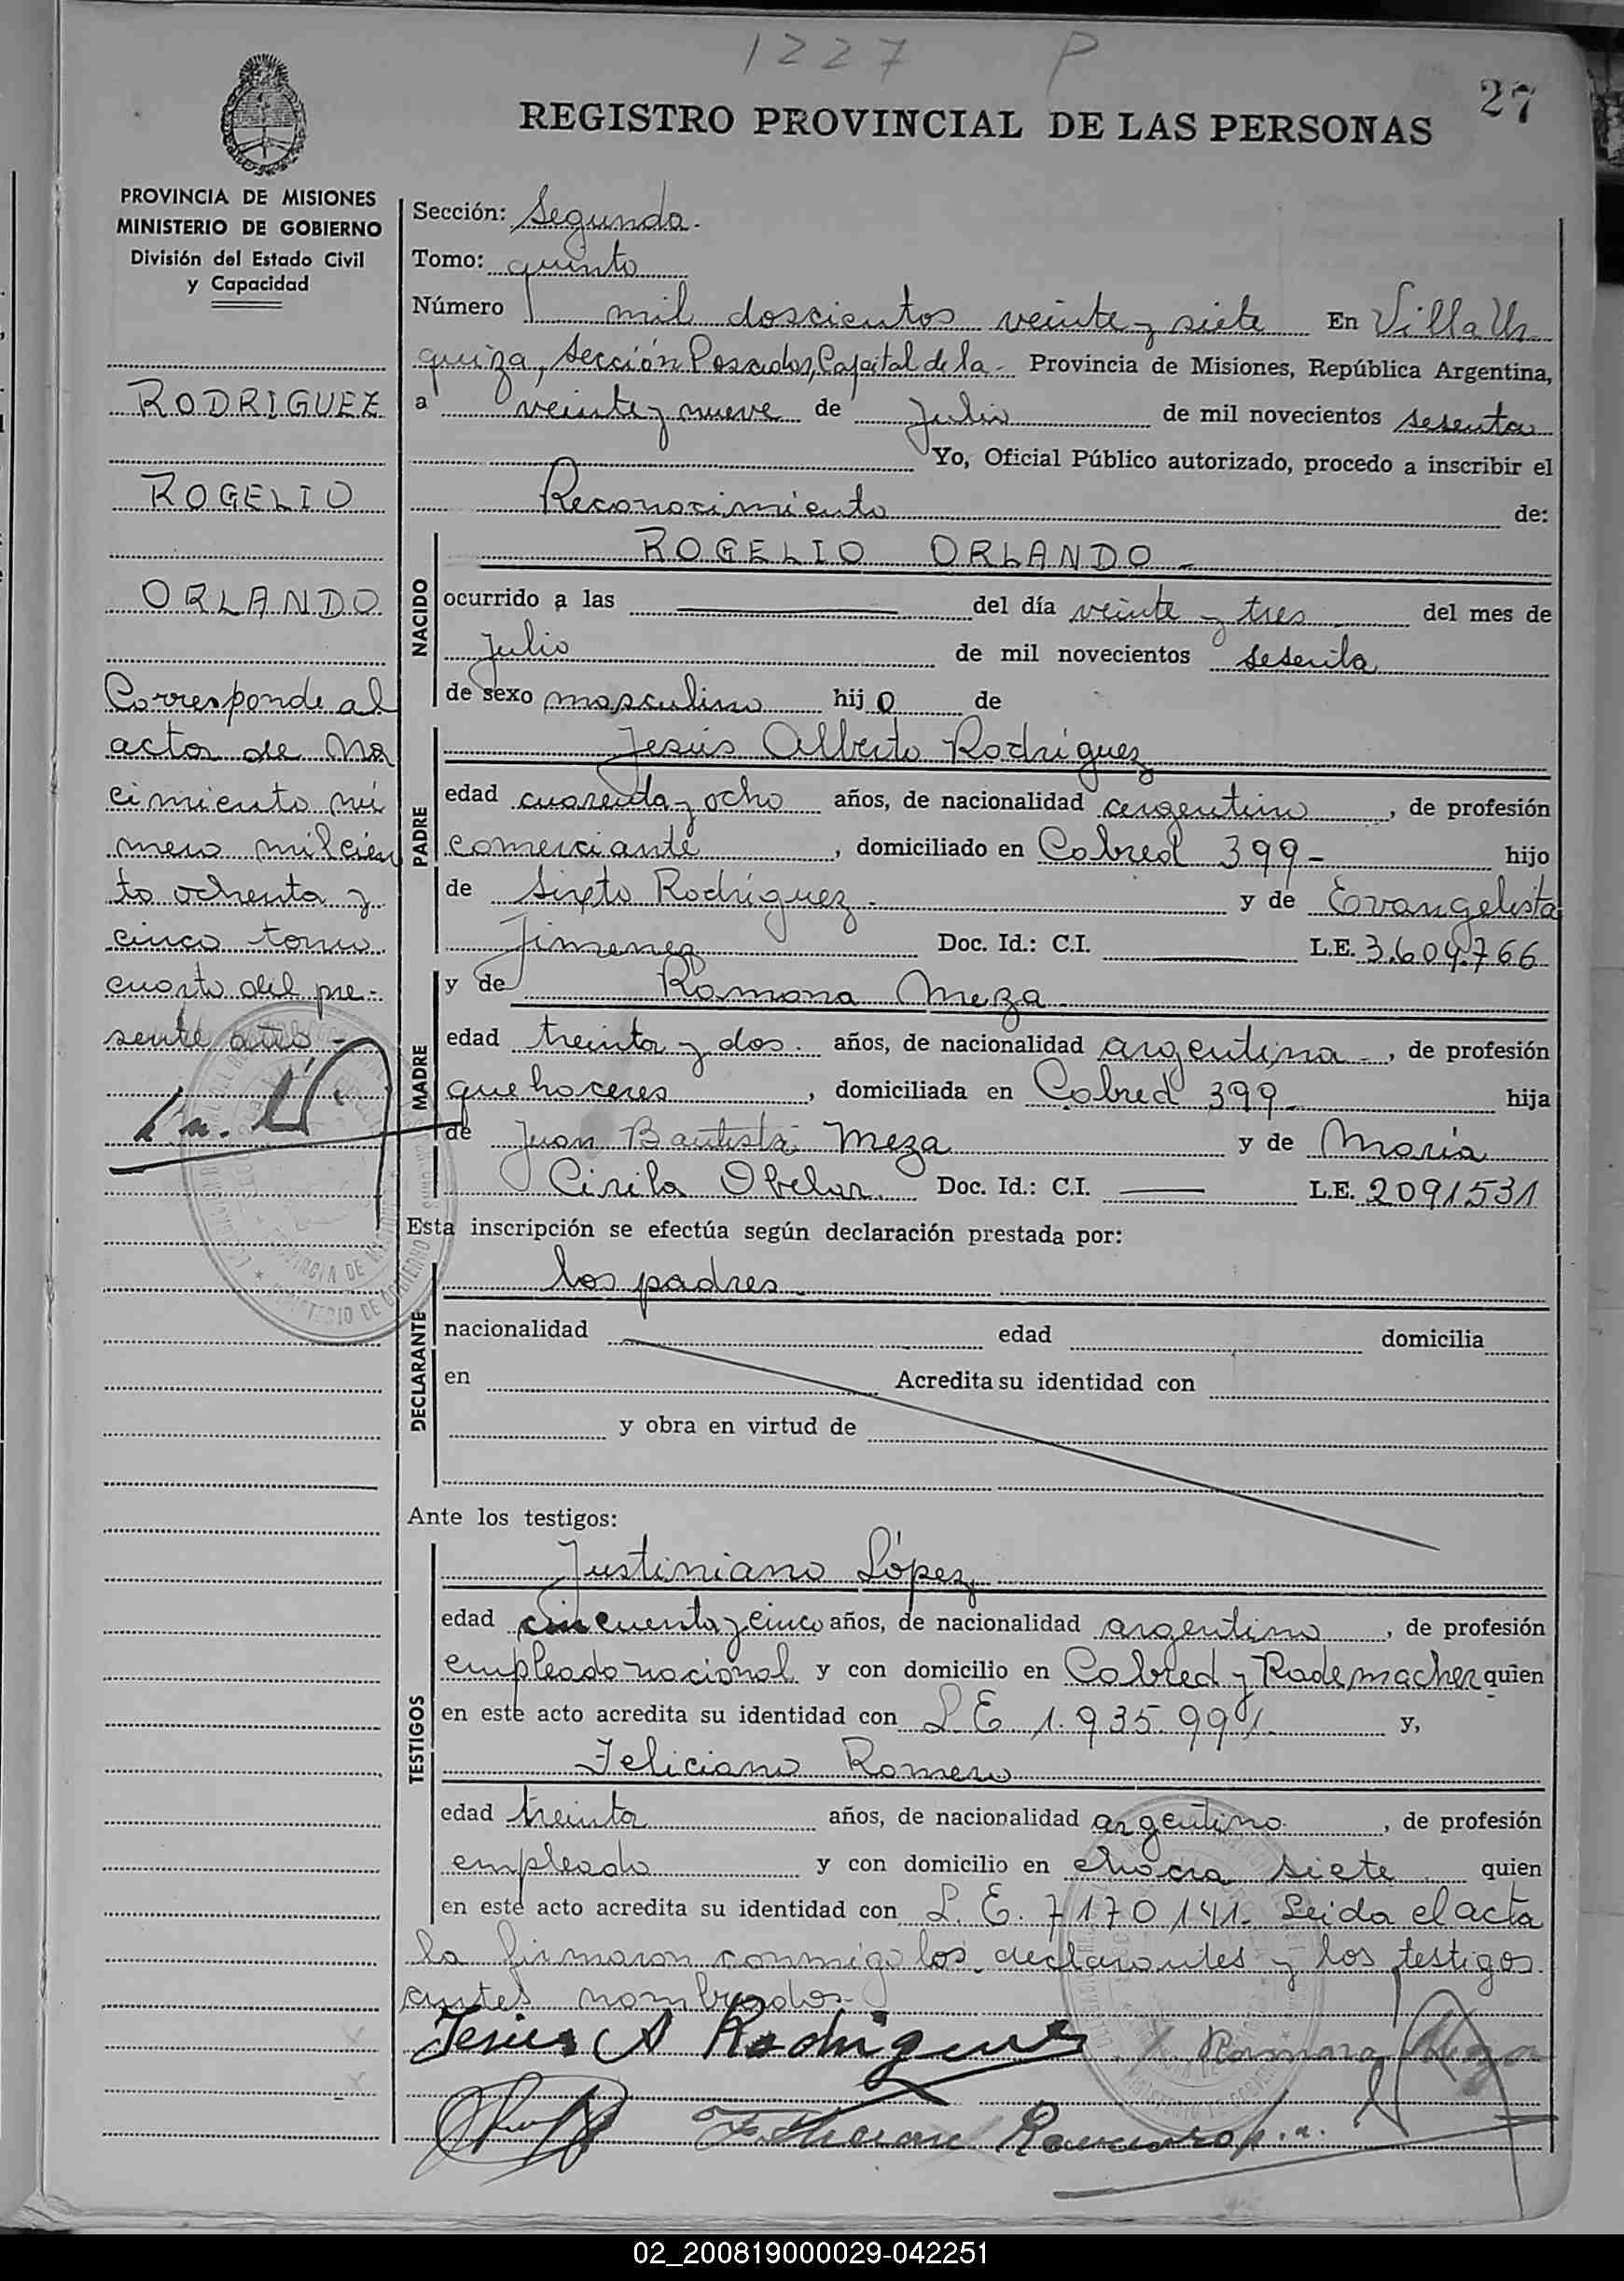 1227 P
27
REGISTRO PROVINCIAL DE LAS PERSONAS
PROVINCIA DE MISIONES
MINISTERIO DE GOBIERNO
División del Estado Civil
y Capacidad
RODRIGUEZ
ROGELIO
ORLANDO
Corresponde al
acta de Na
cimiento nú
mero mil cien
to ochenta y
cinco tomo
cuarto del pre-
sente año -
Sección: Segunda.
Tomo: quinto
Número mil doscientos veinte y siete En Villa Ur
quiza, Sección Posadas, Capital de la - Provincia de Misiones, República Argentina,
a veinte y nueve de Julio de mil novecientos sesenta
Yo, Oficial Público autorizado, procedo a inscribir el
Reconocimiento de:
NACIDO
ROGELIO ORLANDO -
ocurrido a las del día veinte y tres del mes de
Julio de mil novecientos sesenta
de sexo masculino hijo de
PADRE
Jesús Alberto Rodríguez
edad cuarenta y ocho años, de nacionalidad argentino, de profesión
comerciante, domiciliado en Cabred 399 - hijo
de Sixto Rodríguez - y de Evangelista
Jimenez Doc. Id.: C.I. L.E. 3.604.766
MADRE
y de Ramona Meza -
edad treinta y dos - años, de nacionalidad argentina -, de profesión
quehaceres, domiciliada en Cabred 399 - hija
de Juan Bautista Meza y de María
Cirila Obelar Doc. Id.: C.I. L.E. 2091531
Esta inscripción se efectúa según declaración prestada por:
DECLARANTE
los padres
nacionalidad edad domicilia
en Acredita su identidad con
y obra en virtud de
Ante los testigos:
TESTIGOS
Justiniano López
edad cincuenta y cinco años, de nacionalidad argentino, de profesión
empleado nacional y con domicilio en Cabred y Rademacher quien
en este acto acredita su identidad con L E 1.935.991 y,
Feliciano Romero
edad treinta años, de nacionalidad argentino, de profesión
empleado y con domicilio en chacra siete quien
en este acto acredita su identidad con L. E. 7170141- Leida el acta
la firmaron conmigo los declarantes y los testigos
antes nombrados -
Jesús A Rodriguez Ramona Meza
02_200819000029-042251